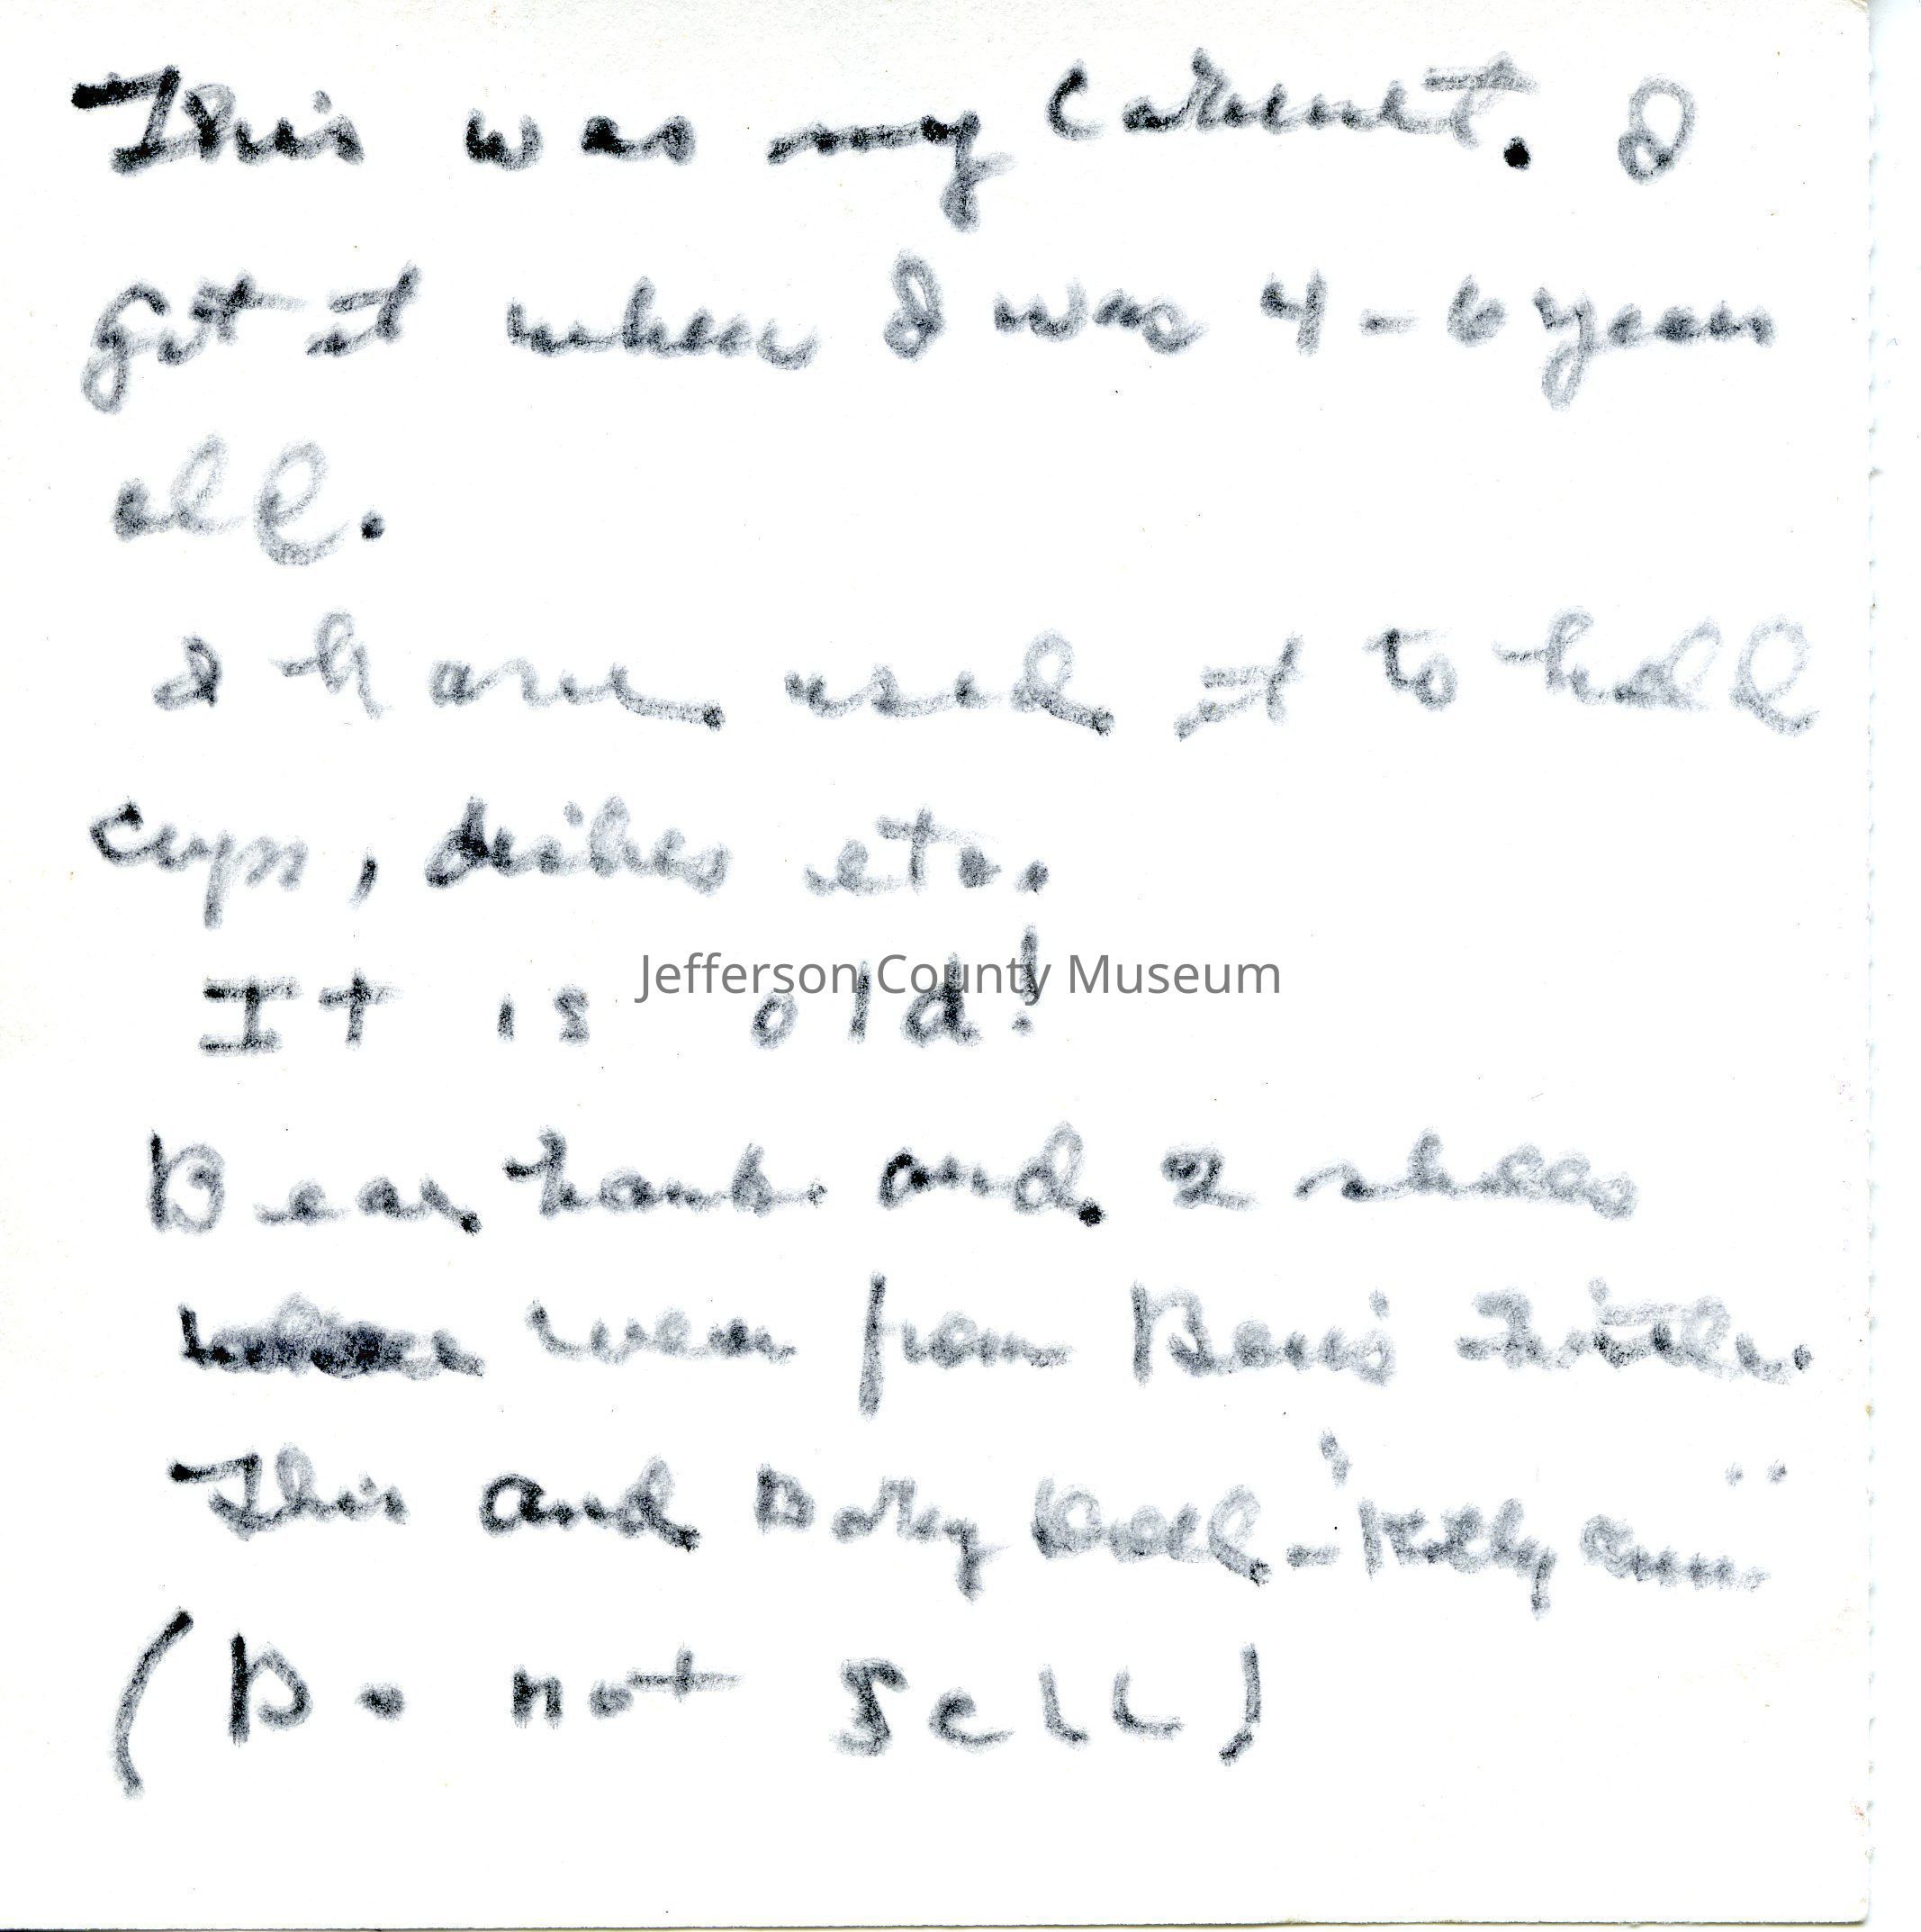 This was my Cabinet. I
got it when I was 4 - 6 years
old.
I have used it to hold
cups, dishes etc.
It is old!
Jefferson County Museum
Bear bank and 2 shelves
were from
This and Baby Doll - "Kelly Ann"
(Do not Sell)